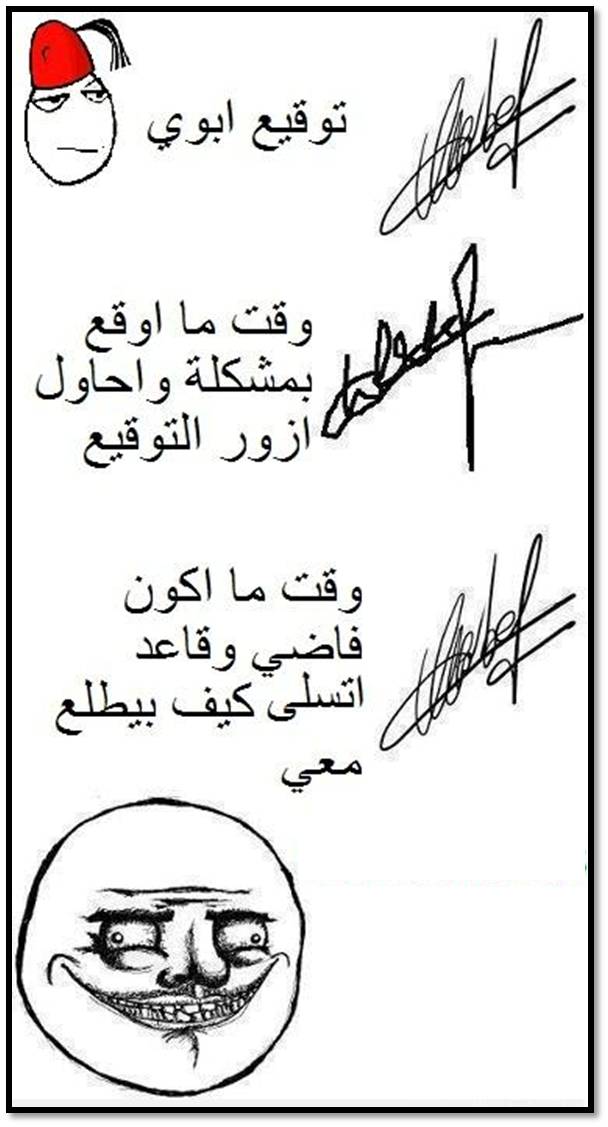 توقيع ابوي
وقت ما اوقع
بمشكلة واحاول
ازور التوقيع
وقت ما اكون
فاضي وقاعد
اتسلى كيف بيطلع
معي